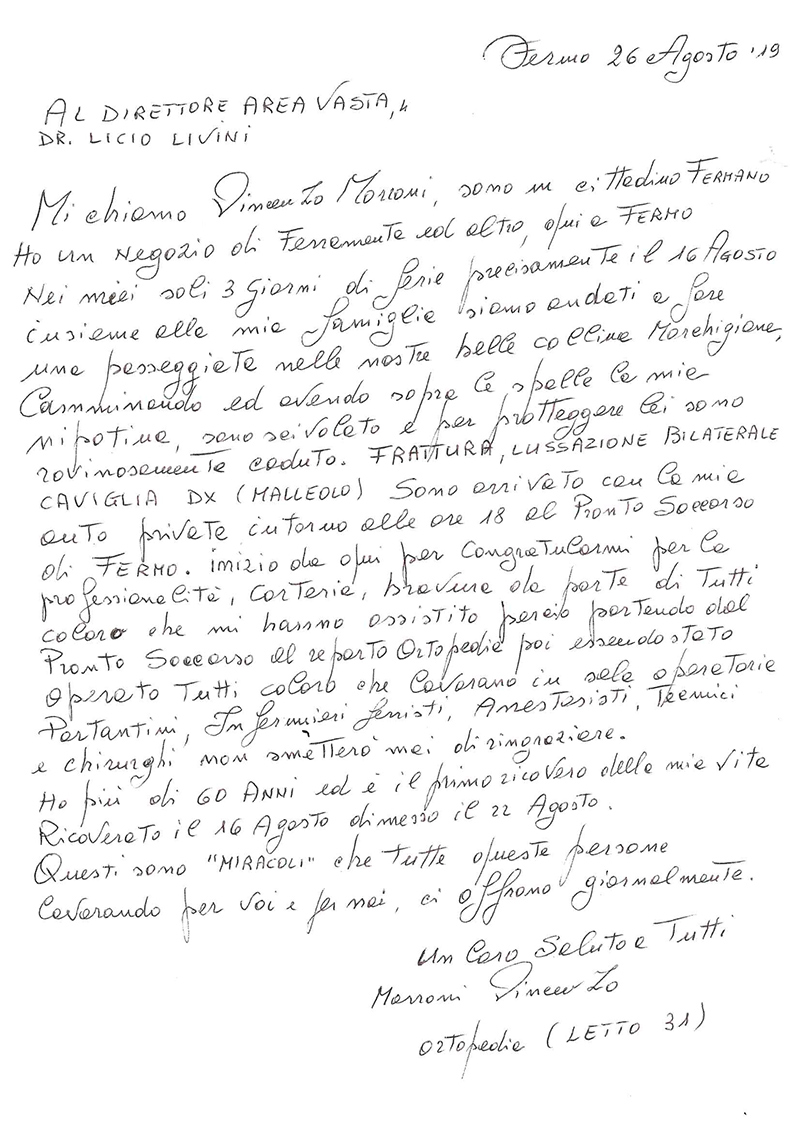 Fermo 26 Agosto '19
AL DIRETTORE AREA VASTA, 4
DR. LICIO LIVINI
Mi chiamo Vincenzo Marroni, sono un cittadino FERMANO
Ho un Negozio di Ferramenta ed altro, qui a FERMO
Nei miei soli 3 Giorni di ferie precisamente il 16 AGOSTO
insieme alla mia famiglia siamo andati a fare
una passeggiata nelle nostre belle colline Marchigiane,
Camminando ed avendo sopra le spalle la mia
nipotina, sono scivolato e per protteggere lei sono
rovinosamente caduto. FRATTURA, LUSSAZIONE BILATERALE
CAVIGLIA DX (MALLEOLO) Sono arrivato con la mia
auto privata intorno alle ore 18 al Pronto Soccorso
di FERMO. inizio da qui per congratularmi per la
professionalità, cortesia, bravura da parte di Tutti
coloro che mi hanno assistito perciò partendo dal
Pronto Soccorso al reparto Ortopedia poi essendo stato
operato Tutti coloro che lavorano in sala operatoria
Portantini, Infermieri ferristi, Anestesisti, Tecnici
e chirurghi non smetterò mai di ringraziare.
Ho più di 60 ANNI ed è il primo ricovero della mia vita
Ricoverato il 16 Agosto dimesso il 22 Agosto.
Questi sono "MIRACOLI" che tutte queste persone
lavorando per voi e per noi, ci offrono giornalmente.
Un Caro Saluto a Tutti
Marroni Vincenzo
Ortopedia (LETTO 31)